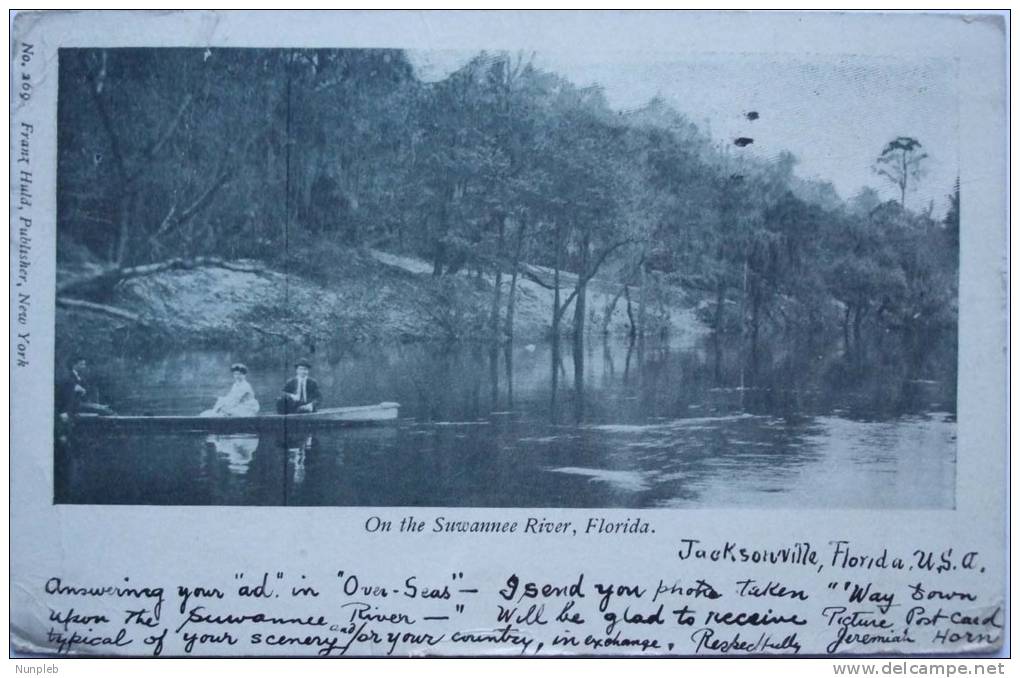 No. 269 Franz Huld, Publisher, New York
On the Suwannee River, Florida.
Jacksonville, Florida. U.S.A.
Answering your "ad." in "Over-Seas" - I send you photo taken "'Way Down
upon the Suwannee River - " Will be glad to receive Picture Post Card
typical of your scenery and/or your country, in exchange. Respectfully Jeremiah Horn
Nunpleb
http://www.delcampe.net